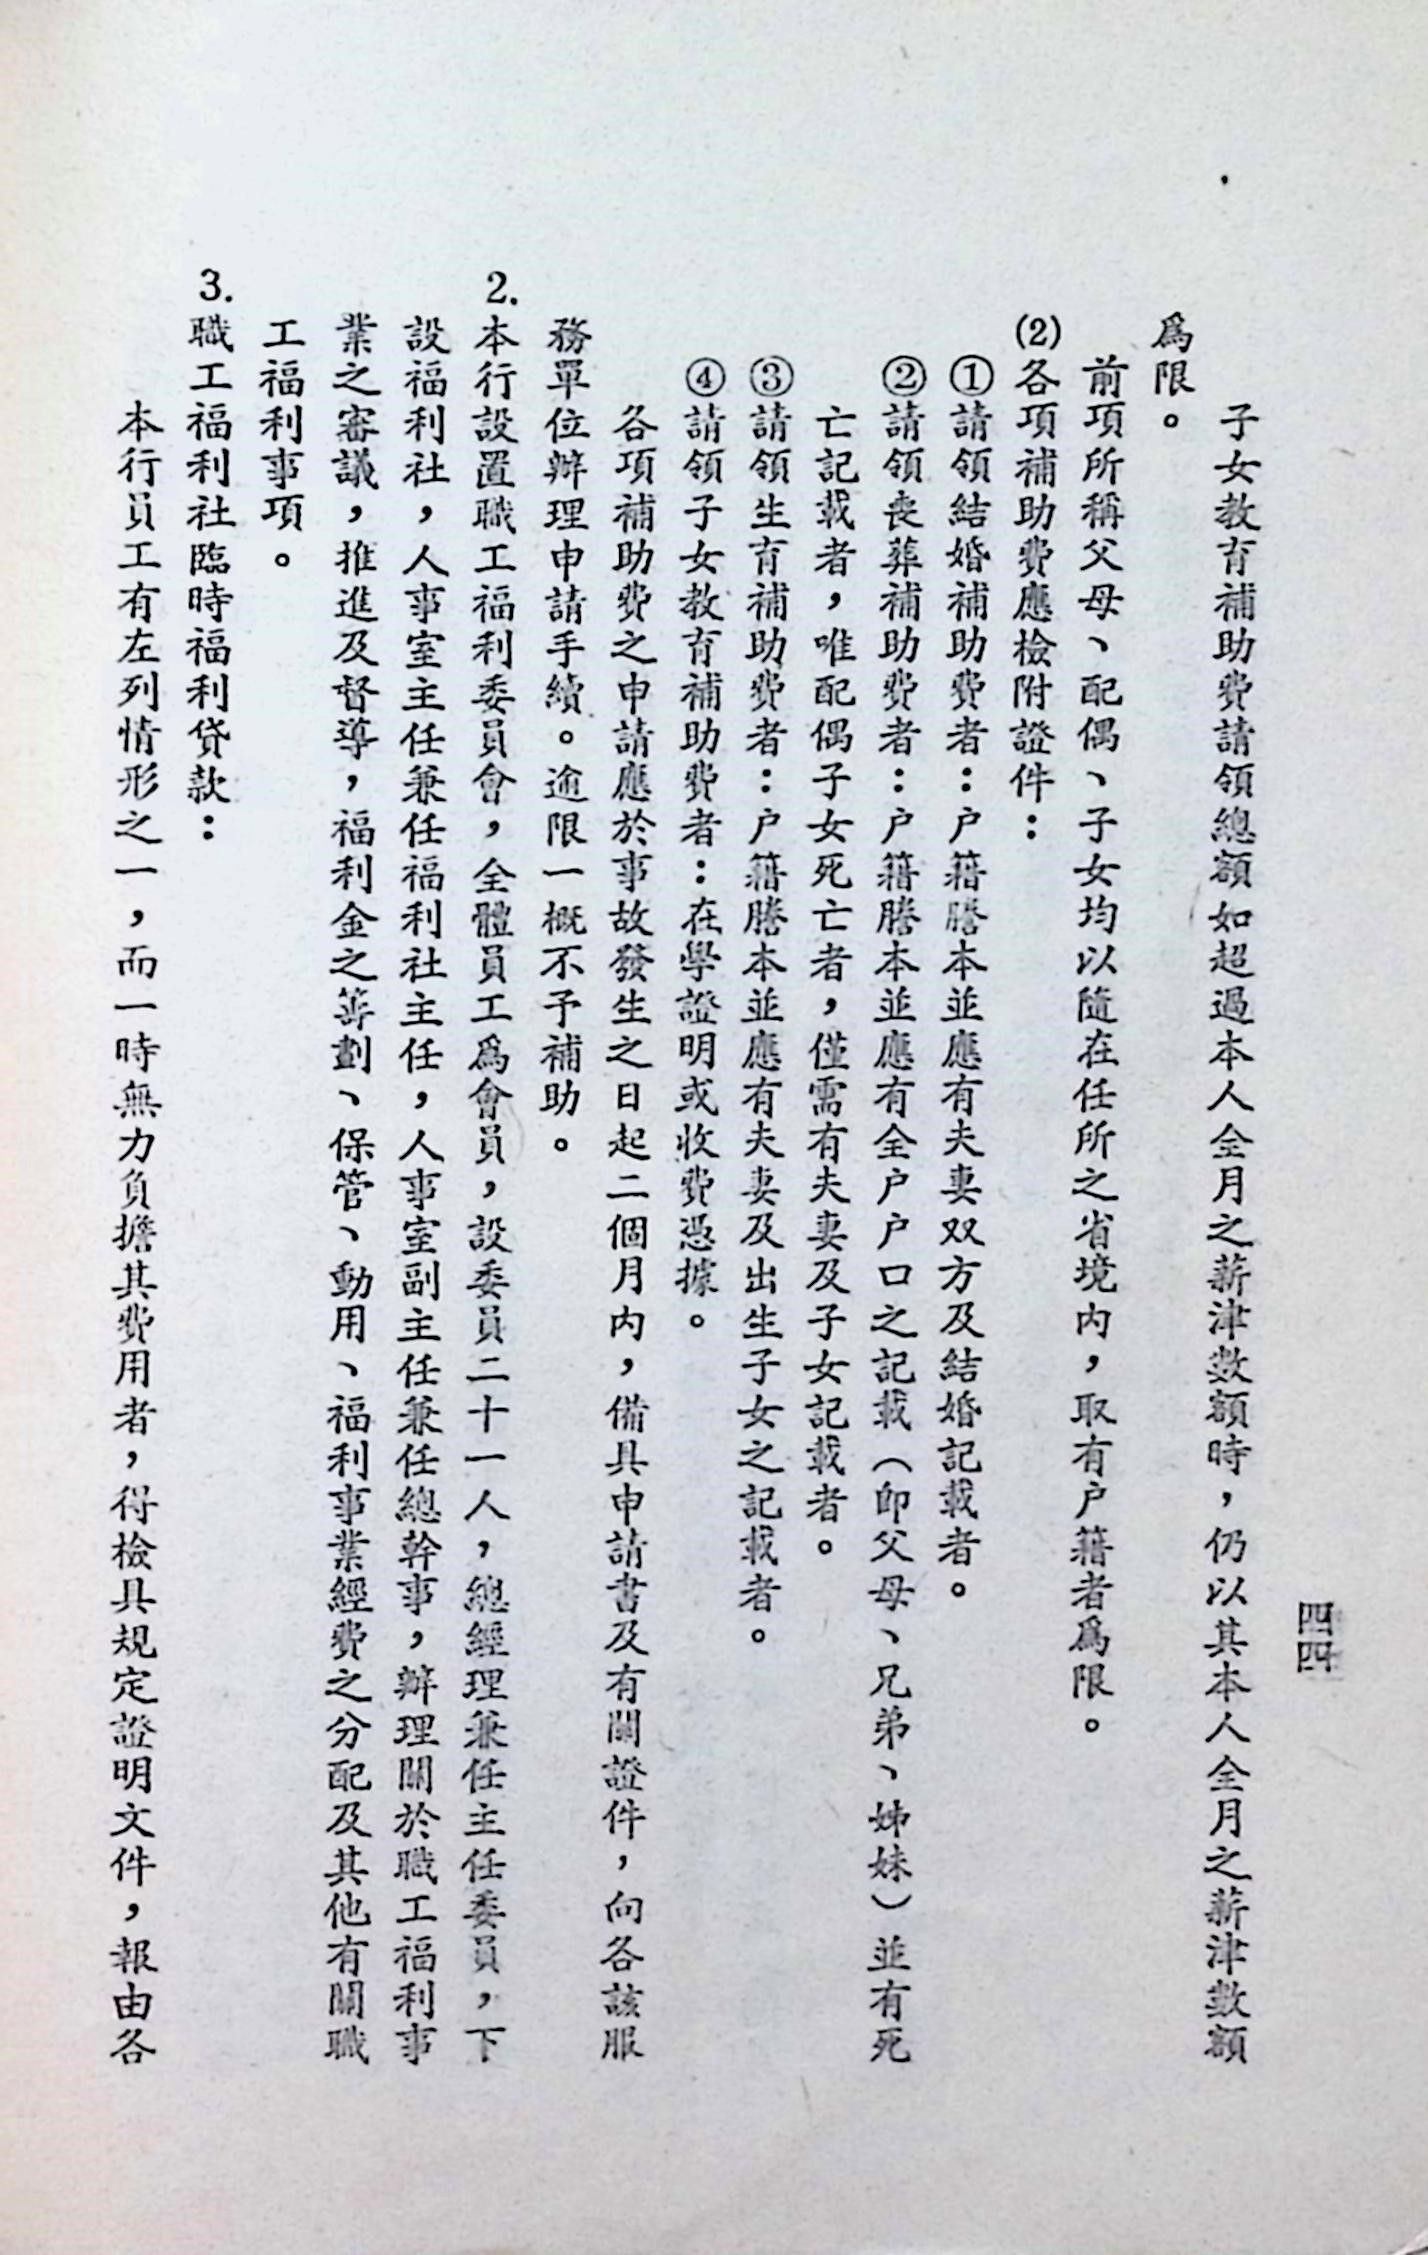 四四
子女教育補助費請領總額如超過本人全月之薪津數額時，仍以其本人全月之薪津數額
爲限。
前項所稱父母、配偶、子女均以隨在任所之省境內，取有户籍者爲限。
(2)各項補助費應檢附證件：
①請領結婚補助費者：户籍謄本並應有夫妻双方及結婚記載者。
②請領喪葬補助費者：户籍謄本並應有全户户口之記載（卽父母、兄弟、姊妹）並有死
亡記載者，唯配偶子女死亡者，僅需有夫妻及子女記載者。
③請領生育補助費者：户籍謄本並應有夫妻及出生子女之記載者。
④請領子女教育補助費者：在學證明或收費憑據。
各項補助費之申請應於事故發生之日起二個月內，備具申請書及有關證件，向各該服
務單位辦理申請手續。逾限一概不予補助。
2.本行設置職工福利委員會，全體員工爲會員，設委員二十一人，總經理兼任主任委員，下
設福利社，人事室主任兼任福利社主任，人事室副主任兼任總幹事，辦理關於職工福利事
業之審議，推進及督導，福利金之籌劃、保管、動用、福利事業經費之分配及其他有關職
工福利事項。
3.職工福利社臨時福利貸款：
本行員工有左列情形之一，而一時無力負擔其費用者，得檢具規定證明文件，報由各